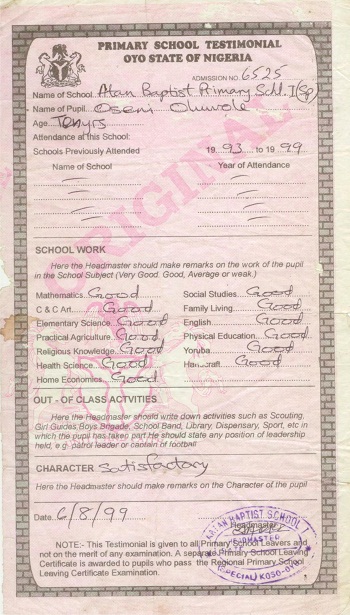 PRIMARY SCHOOL TESTIMONIAL
OYO STATE OF NIGERIA
ADMISSION NO. 6525
Name of School. Atan Baptist Primary Schl. I (Sp)
Name of Pupil. Oseni Oluwole
Age. Ten yrs
Attendance at this School:
Schools Previously Attended 19 93 to 19 99
Name of School Year of Attendance
ORIGINAL
SCHOOL WORK
Here the Headmaster should make remarks on the work of the pupil
in the School Subject (Very Good. Good, Average or weak.)
Mathematics. Good Social Studies. Good
C & C Art. Good Family Living. Good
Elementary Science. Good English. Good
Practical Agriculture. Good Physical Education. Good
Religious Knowledge. Good Yoruba Good
Health Science. Good Handcraft. Good
Home Economies. Good
OUT - OF CLASS ACTIVITIES
Here the Headmaster should write down activities such as Scouting,
Girl Guides Boys Brigade, School Band, Library, Dispensary, Sport, etc in
which the pupil has taken part. He should state any position of leadership
held, e.g. patrol leader or captain of football
CHARACTER Satisfactory
Here the Headmaster should make Remarks on the Character of the Pupil
Date. 6/8/99
Headmaster
BAPTIST SCHOOL I
NOTE:- This Testimonial is given to all Primary School Leavers and
not on the merit of any examination. A separate Primary School Leaving
Certificate is awarded to pupils who pass the Regional Primary School
Leaving Certificate Examination.